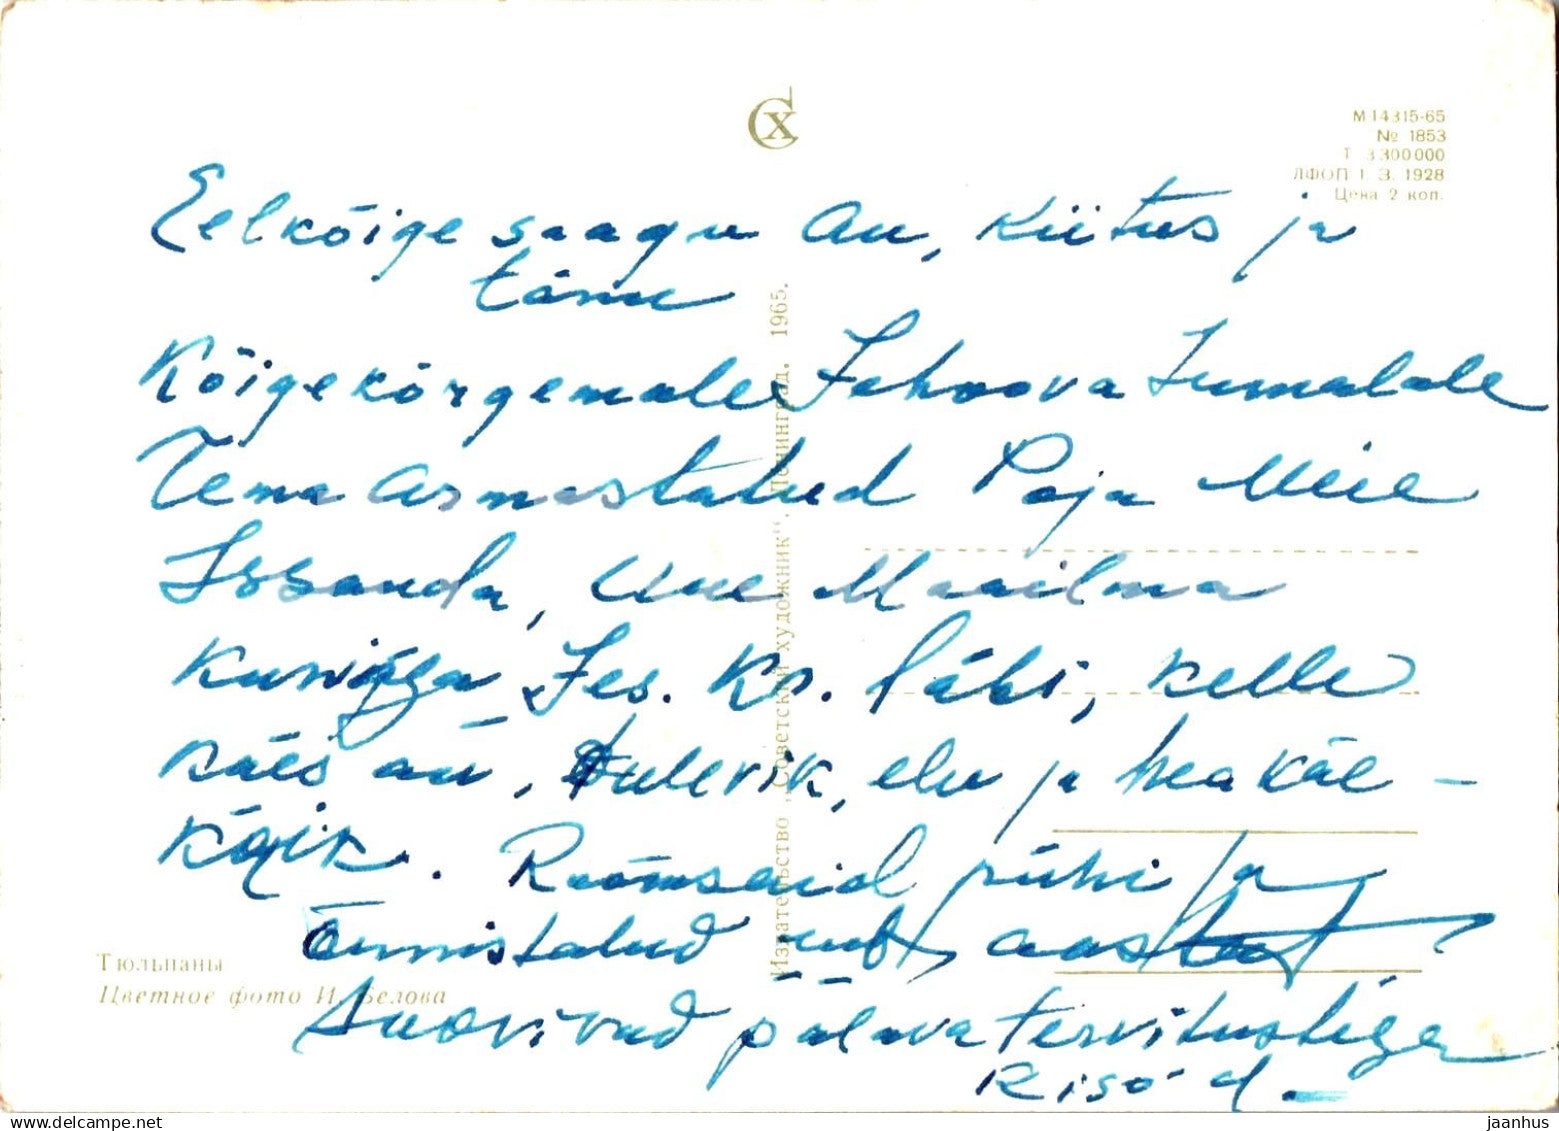 СХ
М-14315-65
№ 1853
Т 3 300 000
ЛФОП 1. З. 1928
Цена 2 коп.
Eelkõige saagu au, kiitus ja
tänu
Kõigekõrgemale Jehoova Jumalale
Tema armastatud Poja Meie
Issanda, uue Maailma
kuninga Jes. Kr. läbi, kelle
käes au, tulevik, elu ja hea käe-
käik. Rõõmsaid pühi ja
Õnnistatud uut aastat
Soovivad palava tervitustega
Издательство „Советский художник“. Ленинград. 1965.
Тюльпаны
Цветное фото И. Белова
jaanhus